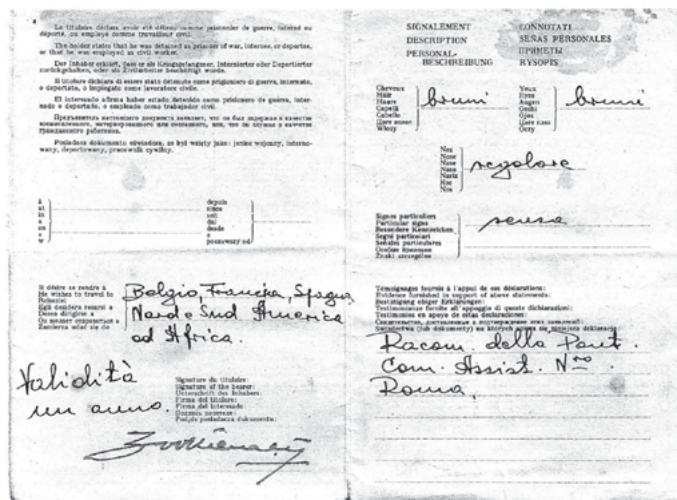 Le titulaire déclare avoir été détenu comme prisonnier de guerre, interné ou
déporté, ou employé comme travailleur civil.
The holder states that he was detained as prisoner of war, internee, or deportee,
or that he was employed as civil worker.
Der Inhaber erklärt, dass er als Kriegsgefangener, Internierter oder Deportierter
zurückgehalten, oder als Zivilarbeiter beschäftigt wurde.
Il titolare dichiara di essere stato detenuto come prigioniero di guerra, internato,
o deportato, o impiegato come lavoratore civile.
El interesado afirma haber estado detenido como prisionero de guerra, inter-
nado o deportado, o empleado como trabajador civil.
à
at
in
a
en
в
w
depuis
since
seit
dal
desde
с
poczawszy od
Il désire se rendre à
He wishes to travel to
Egli desidera recarsi a
Desea dirigirse a
Belgio, Francia, Spagna
Nord e Sud America
ed Africa.
Validità
un anno.
Signature du titulaire:
Signature of the bearer:
Unterschrift des Inhabers:
Firma del titolare:
Firma del interesado:
SIGNALEMENT
DESCRIPTION
PERSONAL-
BESCHREIBUNG
CONNOTATI
SEÑAS PERSONALES
ПРИМЕТЫ
RYSOPIS
Cheveux
Hair
Haare
Capelli
Cabello
Włosy
bruni
Yeux
Eyes
Augen
Occhi
Ojos
Oczy
bruni
Nez
Nose
Nase
Naso
Nariz
Нос
Nos
regolare
Signes particuliers
Particular signs
Besondere Kennzeichen
Segni particolari
Señales particulares
Особые приметы
Znaki szczególne
senza
Témoignages fournis à l'appui de ces déclarations:
Evidence furnished in support of above statements:
Bestätigung einiger Erklärungen:
Testimonianze fornite all'appoggio di queste dichiarazioni:
Testimonios en apoyo de estas declaraciones:
Racom. della Pont.
Com. Assist. N
Roma.